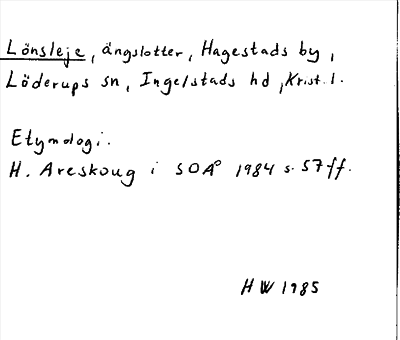 Lönsleje, ängslotter, Hagestads by,
Löderups sn, Ingelstads hd, Krist. l.
Etymologi.
H. Areskoug i SOÅ 1984 s. 57ff.
HW 1985